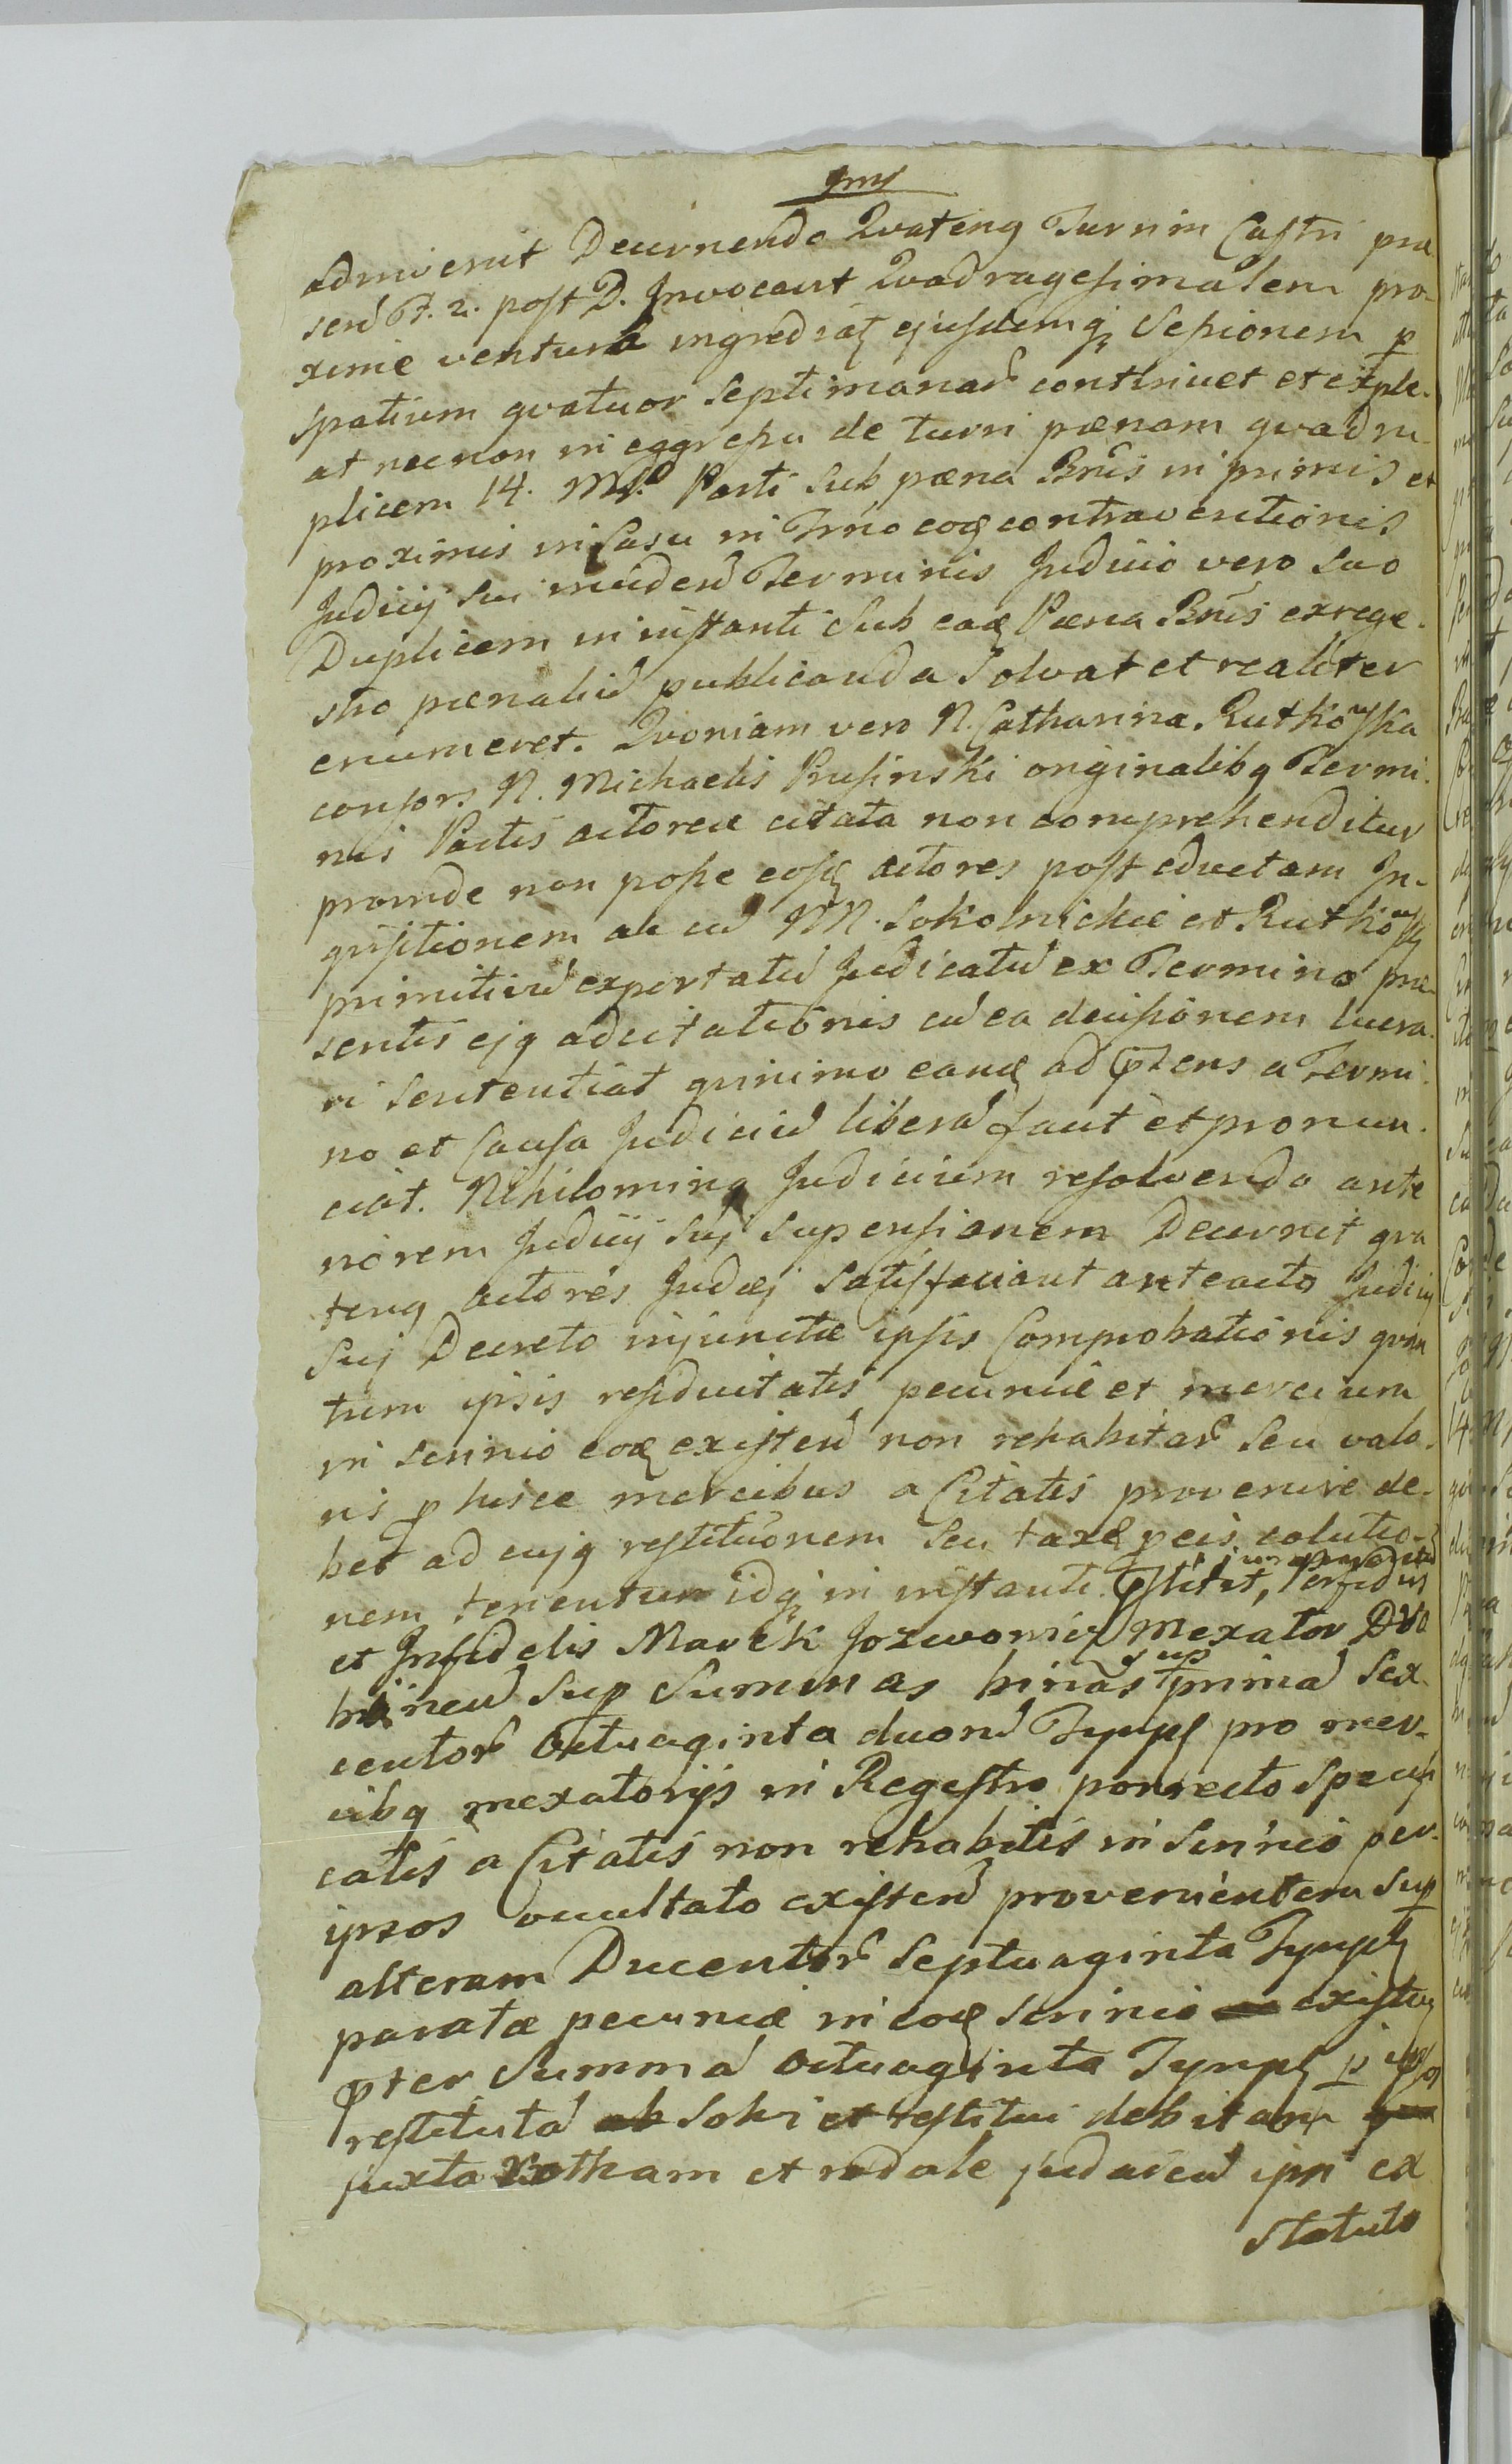 adinvenit Decernendo Qvateng Turrim Castri prae
send F. 2. post D. Invocavit Qvadragesimalem pro-
xime ventura ingrediat ejusdemq Sessionem p
spatium qvatuor septimanar continuet et exple-
at necnon in eggressu de turri paenam qvadru-
plicem 14. Mr. Parti sub paena Bnis in primis et
proximis in Casu in Trno eoq contraventionis
Judicij sui inciden Terminis Judicio vero suo
Duplicem in instanti Sub eaq Paena Bnis ex rege-
stro paenaliu publicanda Solvat et realiter
enumeret. Qvoniam vero N. Catharina Rutkowska
consors N. Michaelis Prusinski originalibq Termi-
nis Partis actoreae citata non comprehenditur
proinde non posse eosq actores post eductam In-
qvisitionem ab eis NN. Sokolnickie et Rutkowsky
primitivu exportatu Judicatu ex Termino prae-
sentis ejq adcitationis cu ea decisionem lucra-
ri sententiat qvinimo eanq ad pns a Termi-
no et Causa Judiciu libera faut et pronun-
ciat. Nihilominq Judicium resolvendo ante
riorem Judicij Suj Suspensionem Decernit qva
tenq actores Judaej Satisfaciant anteacto Judicij
Suj Decreto injunctae ipsis Comprobationis qvan
tum ipsis residuitatis pecuniae et mercium
in scrinio eoq existen non rehabitar seu valo-
ris p hisce mercibus a Citatis provenire de-
bet ad cujq restitutionem seu taxae peis solutio-
nem tenentur idq in instanti Pstitit, Perfidus
et Infidelis Marek Jozwowicz mexator
Sup Summas binas sup prima Sex
centor Octuaginta duoru Tympf pro mer-
cibq mexatorijs in Regestro porrecto Specifi
catis a Citatis non rehabitis in scrinio per
ipsos occultato existen provenientem Sup
alteram Ducentor Septuaginta Tympf
paratae pecuniae in eoq scrinio existen
pter Summa Octuaginta Tympf p ipsos
restituta solvi et restitui debitam
juxta Rotham et rodale judaicu ipsi ex
Statuto